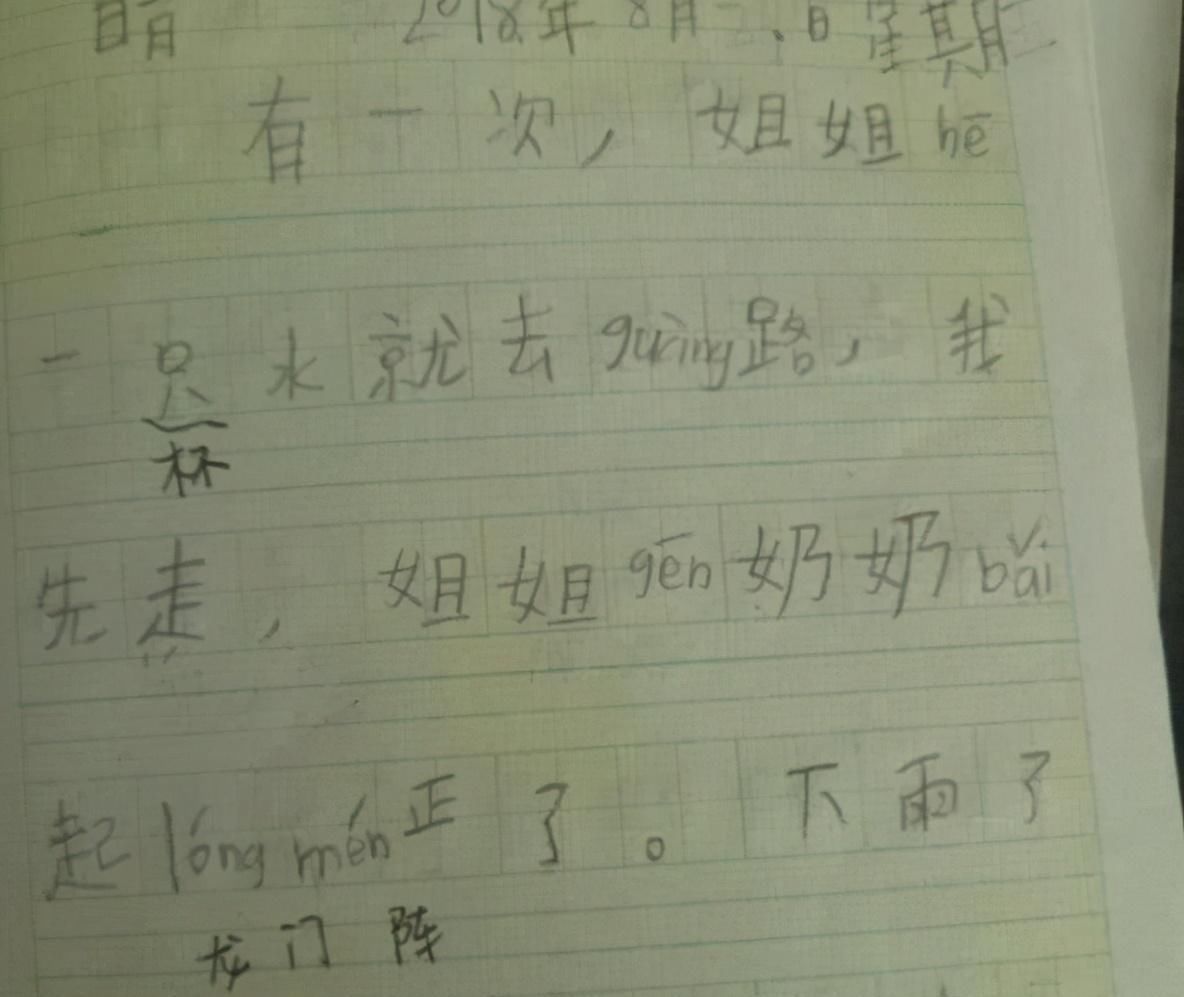 晴 2018年8月 日星期
有一次，姐姐hē
一只水就去guàng路，我
杯
先走，姐姐gēn奶奶bǎi
起lóng mén正了。下雨了
龙门阵